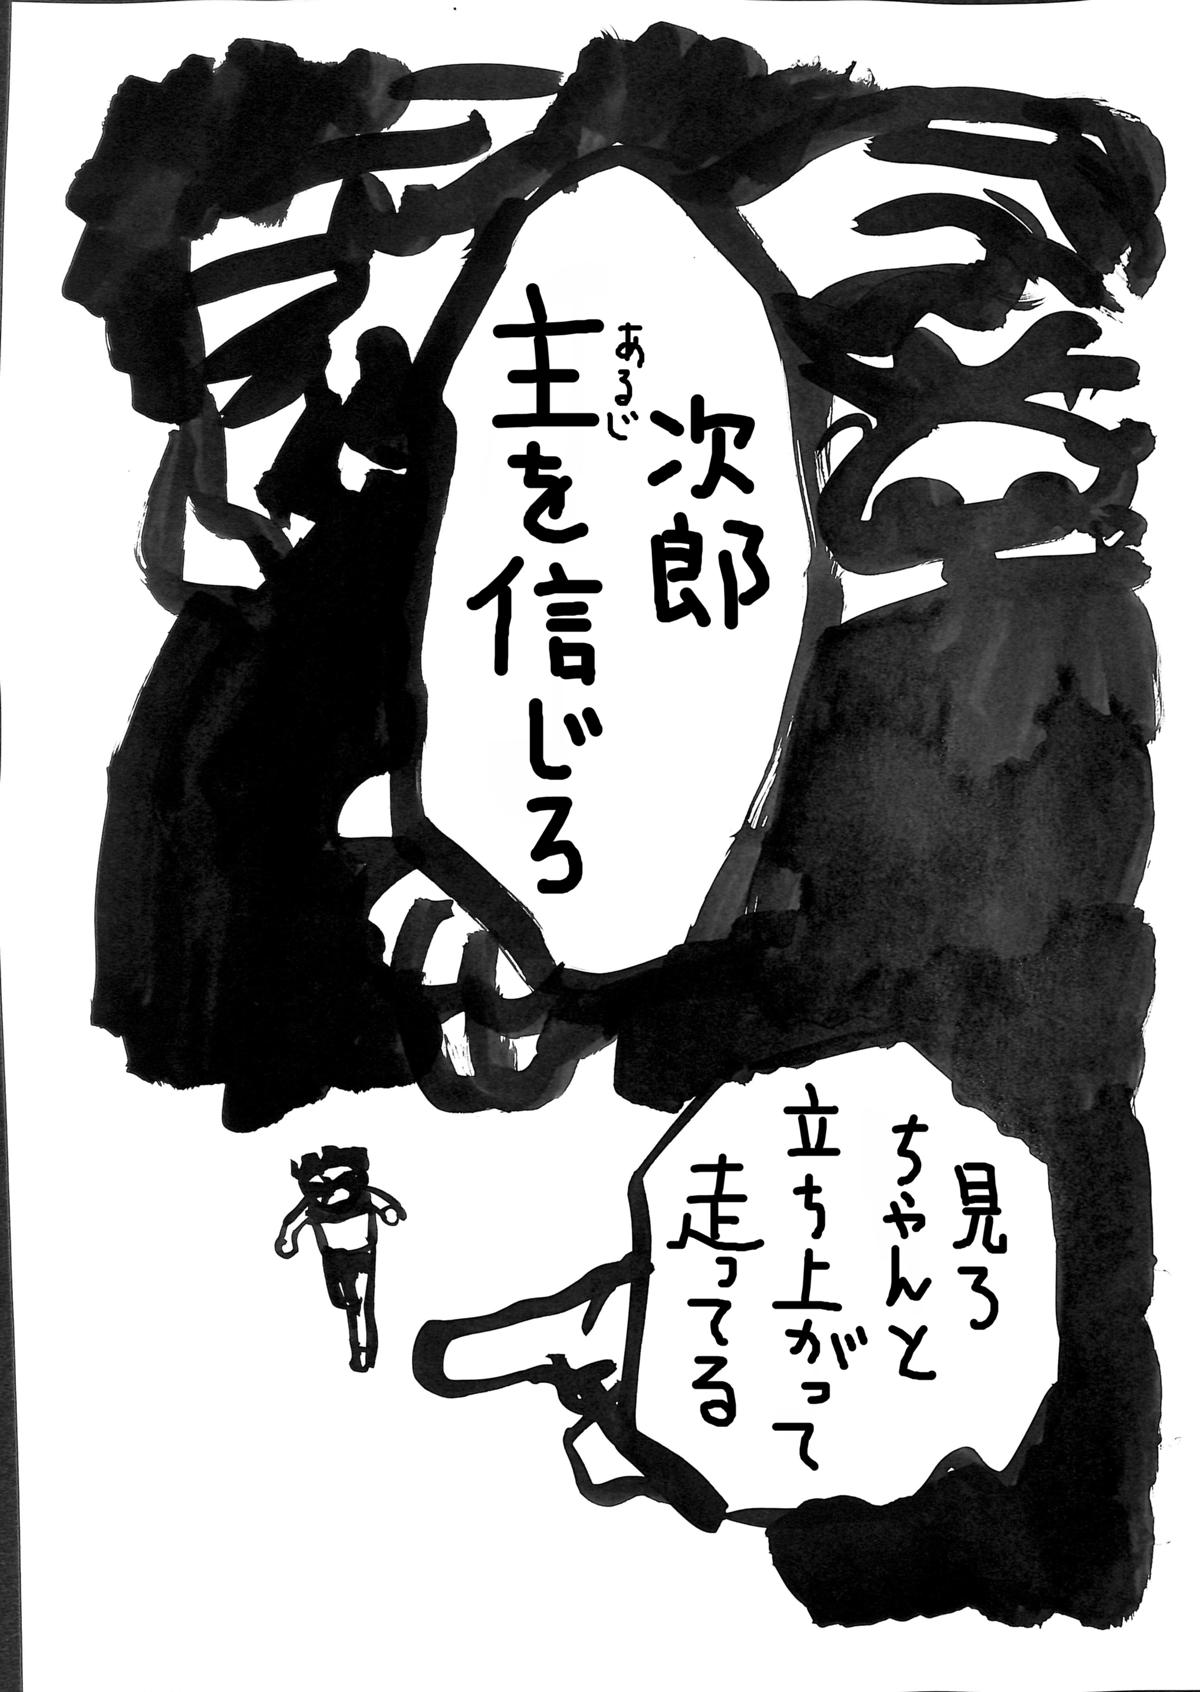 次郎
主を信じろ
あるじ
見ろ
ちゃんと
立ち上がって
走ってる